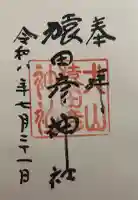 奉拝
猿田彦神社
令和八年七月二十一日